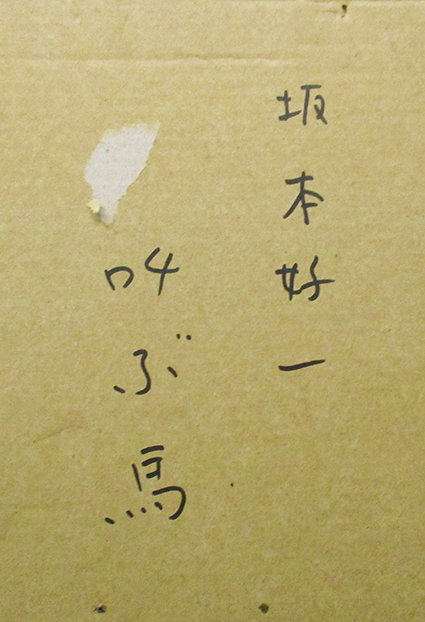 坂本好一
叫ぶ馬